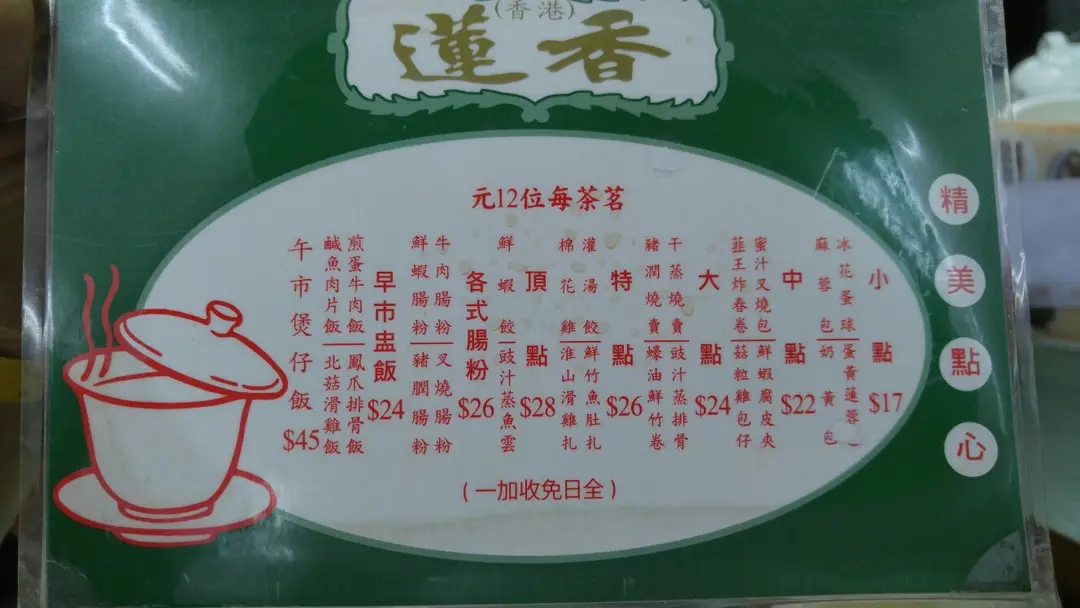 (香港)
蓮香
精美點心
茗茶每位12元
小點 $17
冰花蛋球
蛋黃蓮蓉
麻蓉包
奶黃包
中點 $22
蜜汁叉燒包
鮮蝦腐皮夾
韮王炸春卷
菇粒雞包仔
大點 $24
干蒸燒賣
豉汁蒸排骨
豬潤燒賣
蠔油鮮竹卷
特點 $26
灌湯餃
鮮竹魚肚扎
棉花雞
淮山滑雞扎
頂點 $28
鮮蝦餃
豉汁蒸魚雲
各式腸粉 $26
牛肉腸粉
叉燒腸粉
鮮蝦腸粉
豬膶腸粉
早市盅飯 $24
煎蛋牛肉飯
鳳爪排骨飯
鹹魚肉片飯
北菇滑雞飯
午市煲仔飯 $45
(全日免收加一)